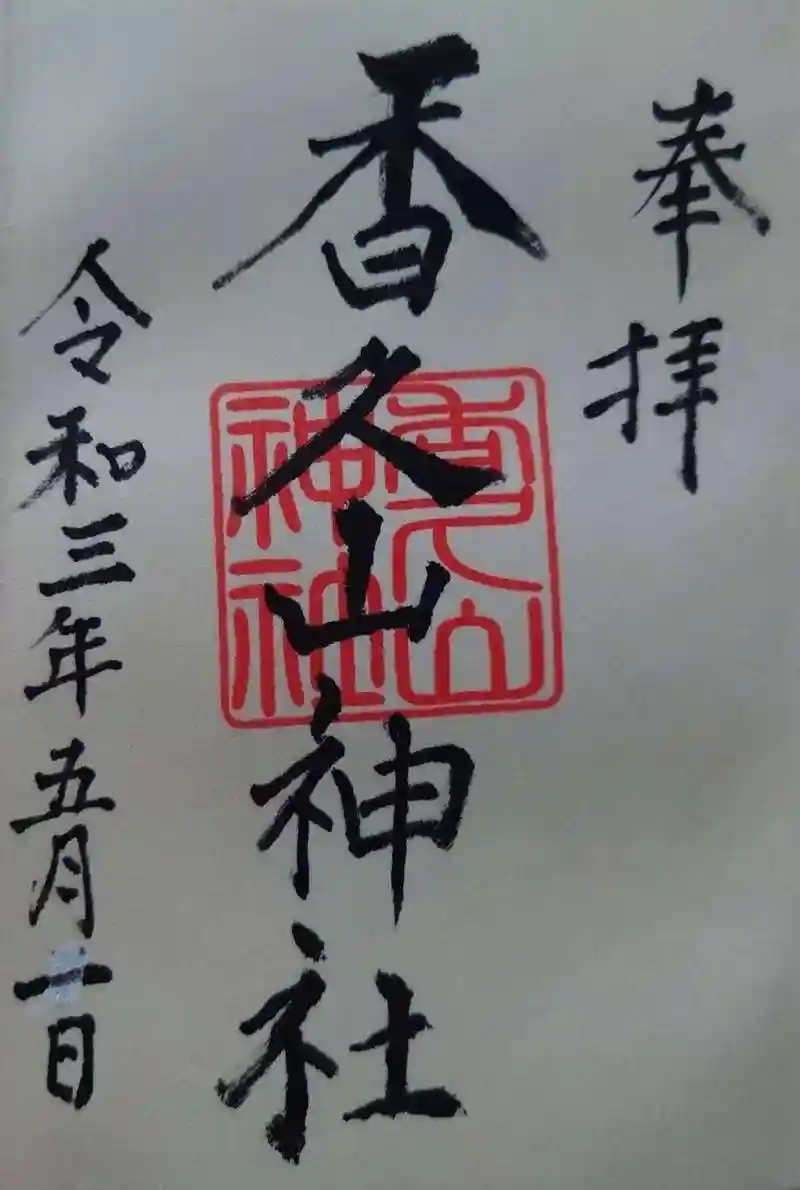 奉拝
香久山神社
香久山神社
令和三年五月一日